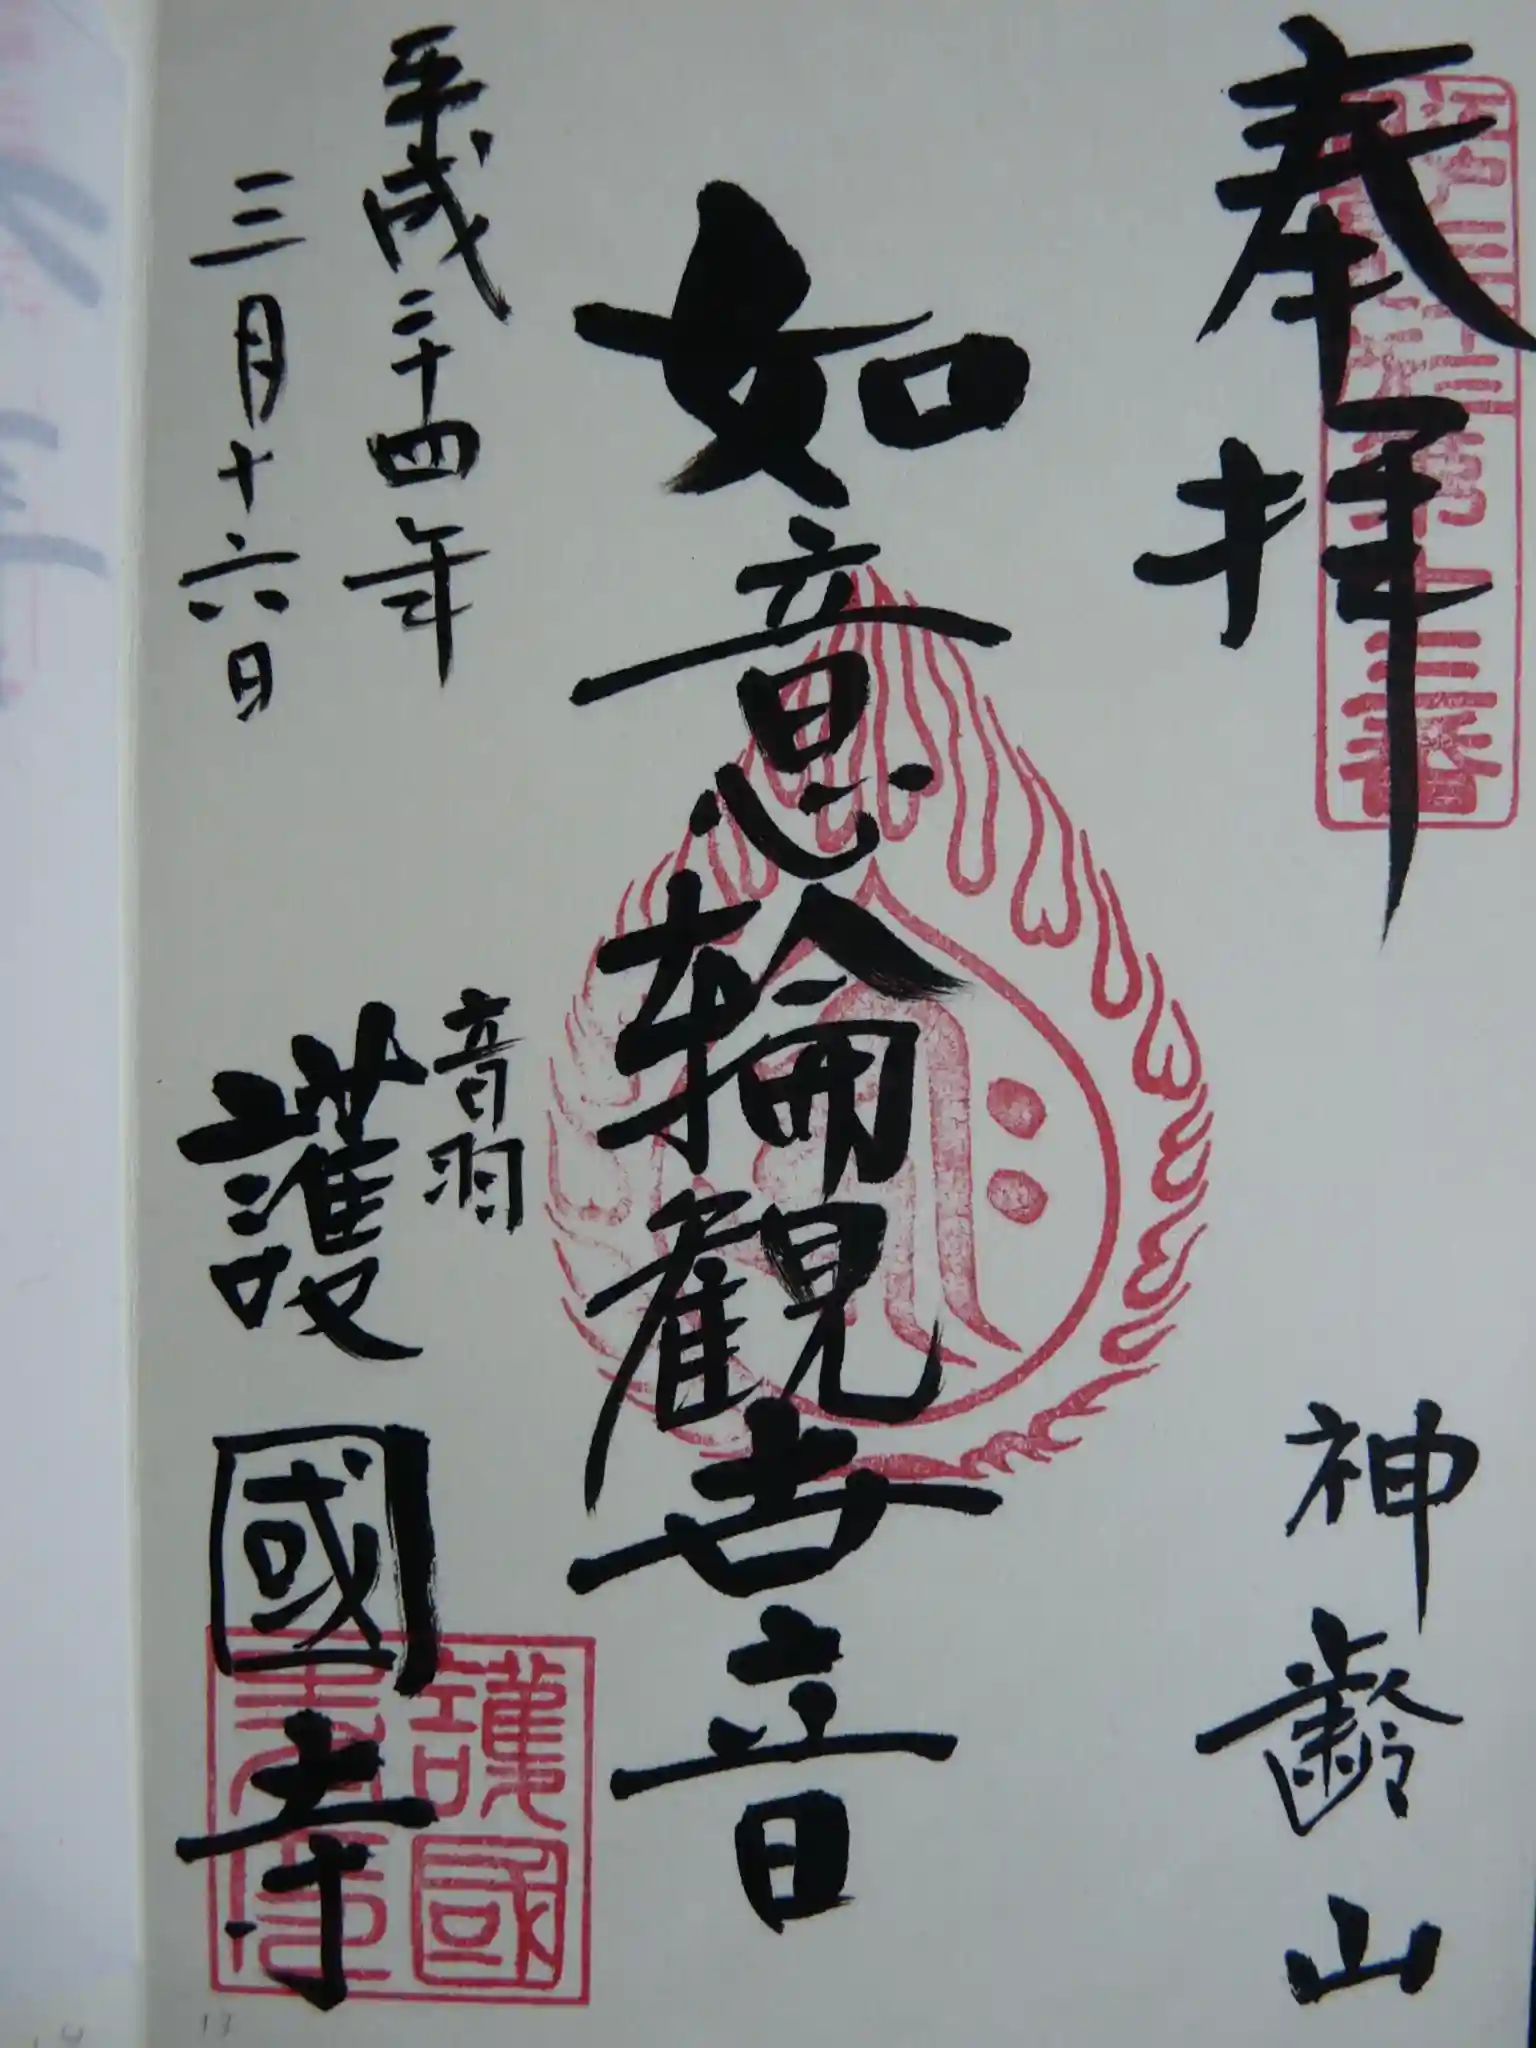 奉拝
神齢山
如意輪観世音
平成二十四年
三月十六日
音羽
護國寺
第十三番
護國
13